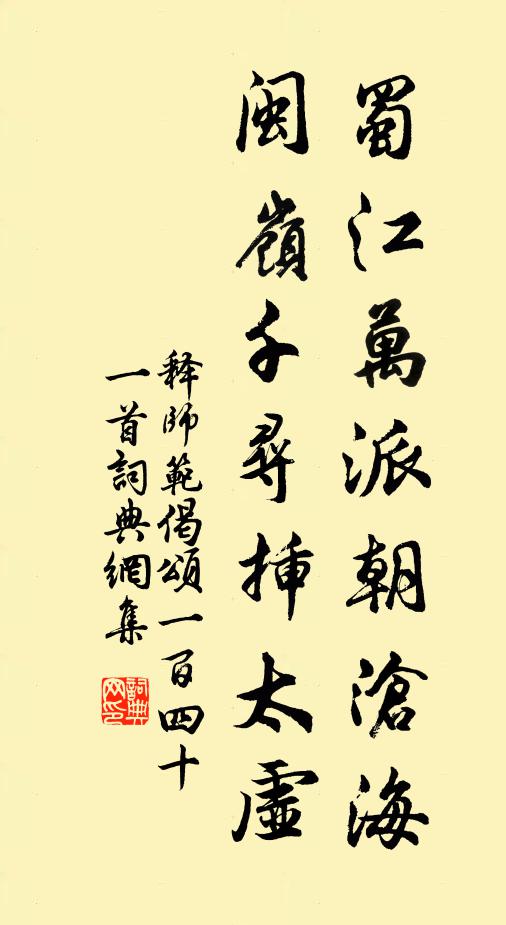 蜀江萬派朝滄海
閩嶺千尋挿太虛
释師範偈頌一百四十
一首詞典網集
詞典
网印